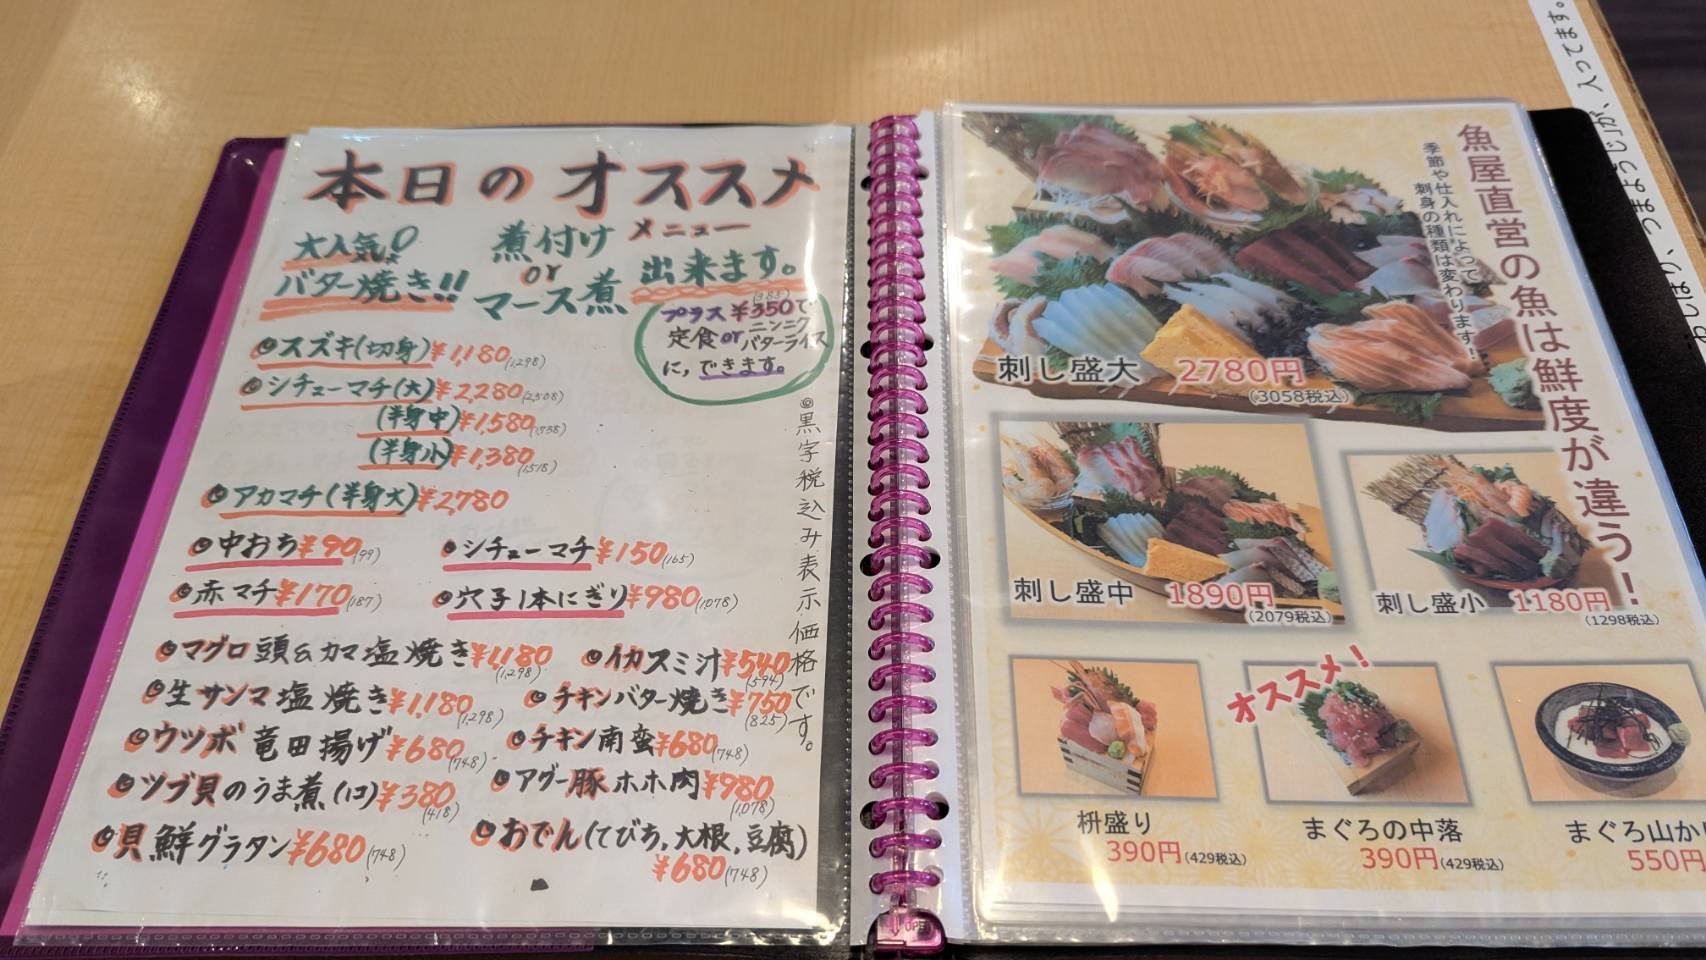 本日のオススメ
メニュー
大人気!
バター焼き!!
煮付け
or
マース煮
出来ます。
(385)
プラス¥350で
定食orニンニクバターライス
に,できます。
◎スズキ(切身)¥1,180(1,298)
◎シチューマチ(大)¥2,280(2,508)
(半身中)¥1,580(1,738)
(半身小)¥1,380(1,518)
◎アカマチ(半身大)¥2780
◎中おち¥90(99)
◎シチューマチ¥150(165)
◎赤マチ¥170(187)
◎穴子1本にぎり¥980(1,078)
◎マグロ頭&カマ塩焼き¥1,180(1,298)
◎イカスミ汁¥540(594)
◎生サンマ塩焼き¥1,180(1,298)
◎チキンバター焼き¥750(825)
◎ウツボ竜田揚げ¥680(748)
◎チキン南蛮¥680(748)
◎ツブ貝のうま煮(1コ)¥380(418)
◎アグー豚ホホ肉¥980(1,078)
◎貝鮮グラタン¥680(748)
◎おでん(てびち,大根,豆腐)
¥680(748)
◎黒字税込み表示価格です。
魚屋直営の魚は鮮度が違う!
季節や仕入れによって
刺身の種類は変わります!
刺し盛大 2780円
(3058税込)
刺し盛中 1890円
(2079税込)
刺し盛小 1180円
(1298税込)
オススメ!
枡盛り
390円(429税込)
まぐろの中落
390円(429税込)
まぐろ山か
550円
OPEN
つまようじが、入ってます。